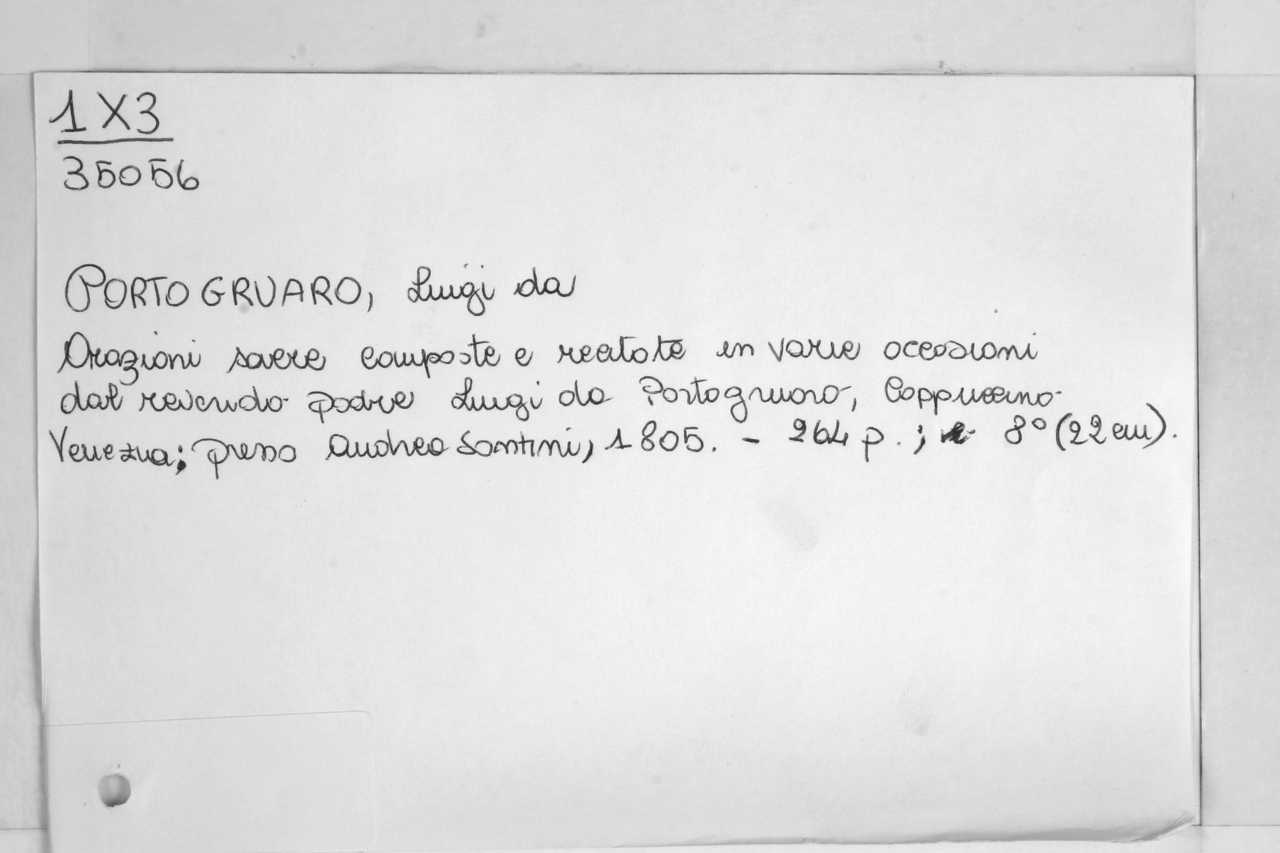 1 X3
35056
PORTOGRUARO, Luigi da
Orazioni sacre composte e recitate in varie occasioni
dal revendo padre Luigi da Portogruaro, Cappuccino
Venezia; presso Andrea Santini, 1805. - 264 p. ; 8° (22 cm).